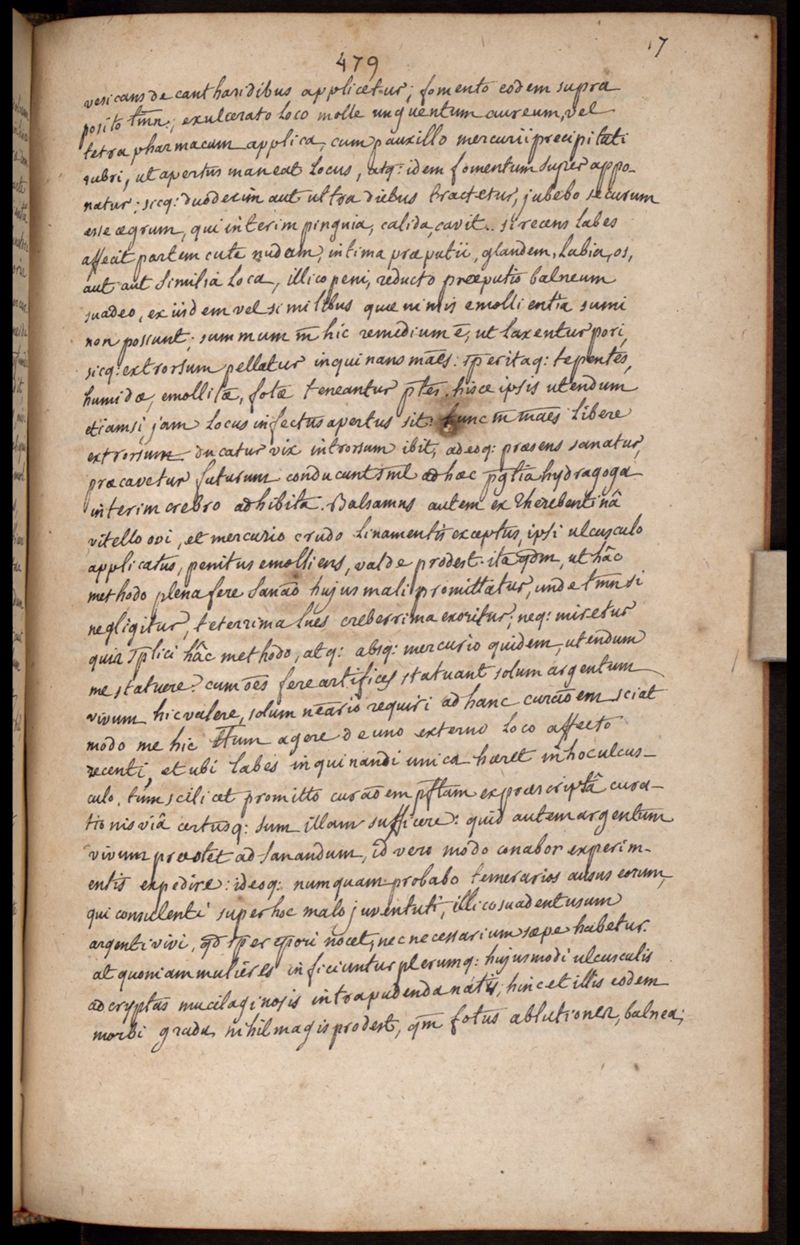 479
17
vesicans de cantharidibus applicetur; fomento eodem supra
posito tm̄n; exulcerato loco molle unguentum aureum, vel
tetrapharmacum applica, cum pauxillo mercurii precipitati
rubri, ut apertus maneat locus, atq: idem fomentum super appo-
natur; sicq: duodecim aut ultra diebus tractetur, jubebo securum
esse ægrum, qui interim pinguia, calida, cavit.. si recens labes
affecit partem cute nudam, intima præputii, glandem, labia, os,
aut aut similia loca, illico peni, reducto præputio balneum
suadeo, ex iisdem vel similibus quæ nimis emollientia sumi
non possunt; summum m̄ hic remedium ē, ut laxentur pori,
sicq: extrorsum pellatur inquinans māes: sp̄eritaq: tepentes,
humidæ, emollitæ, fotæ teneantur p̄tes. hisce ipsis utendum
etiamsi jam locus infectus apertus sit: hunc m̄ māes libere
extrorsum ducatur vix introrsum ibit, adeoq: præsens sanatur,
præcavetur futurum conducunt sml ad hæc p̄gtīa hydragoga
interim crebro adhibita. Balsamus autem ex Therebentinâ
vitello ovi, et mercurio crudo linamentis exceptus, ipsi ulcusculo
applicatus, penitus emolliens, valde prodest. ita qdm, ut hâc
methodo plena fere sanāo hujus mali promittatur, unde tm̄n si
negligitur, teterrima lues creberrima exoritur; neq: miretur
quis sp̄lici hâc methodo, atq: absq: mercurio quidem, utendum
me statuere? cum oēs fere artifices statuant solum argentum
vivum hic valere, solum nēario requiri ad hanc curāoem sciat
modo me hic t̄tum agere de uno externo loco affecto
recenti, et ubi labes inquinandi unica hæret in hoc ulcus-
culo. tum scilicet promitto curāoem p̄ftam ex præscriptâ cura-
tionis viâ certusq: sum illam sufficere: quid autem argentum
vivum præstet ad sanandum, id vero modo conabor experim-
entis expedire: ideoq: numquam probabo temerarios ausus eorum,
qui consulenti super hoc malo juventuti, illico suadent usum
argenti vivi, qd sp̄er cpori nocet, nec necessarium sæpe habetur.
at quoniam mulieres inficiuntur plerumq: hujusmodi ulcusculis
ad cryptas mucilaginosis intra pudenda natis, hinc et illis eodem
morbi gradu nihil magis prodest, qm̄ fotus ablutiones, balnea;